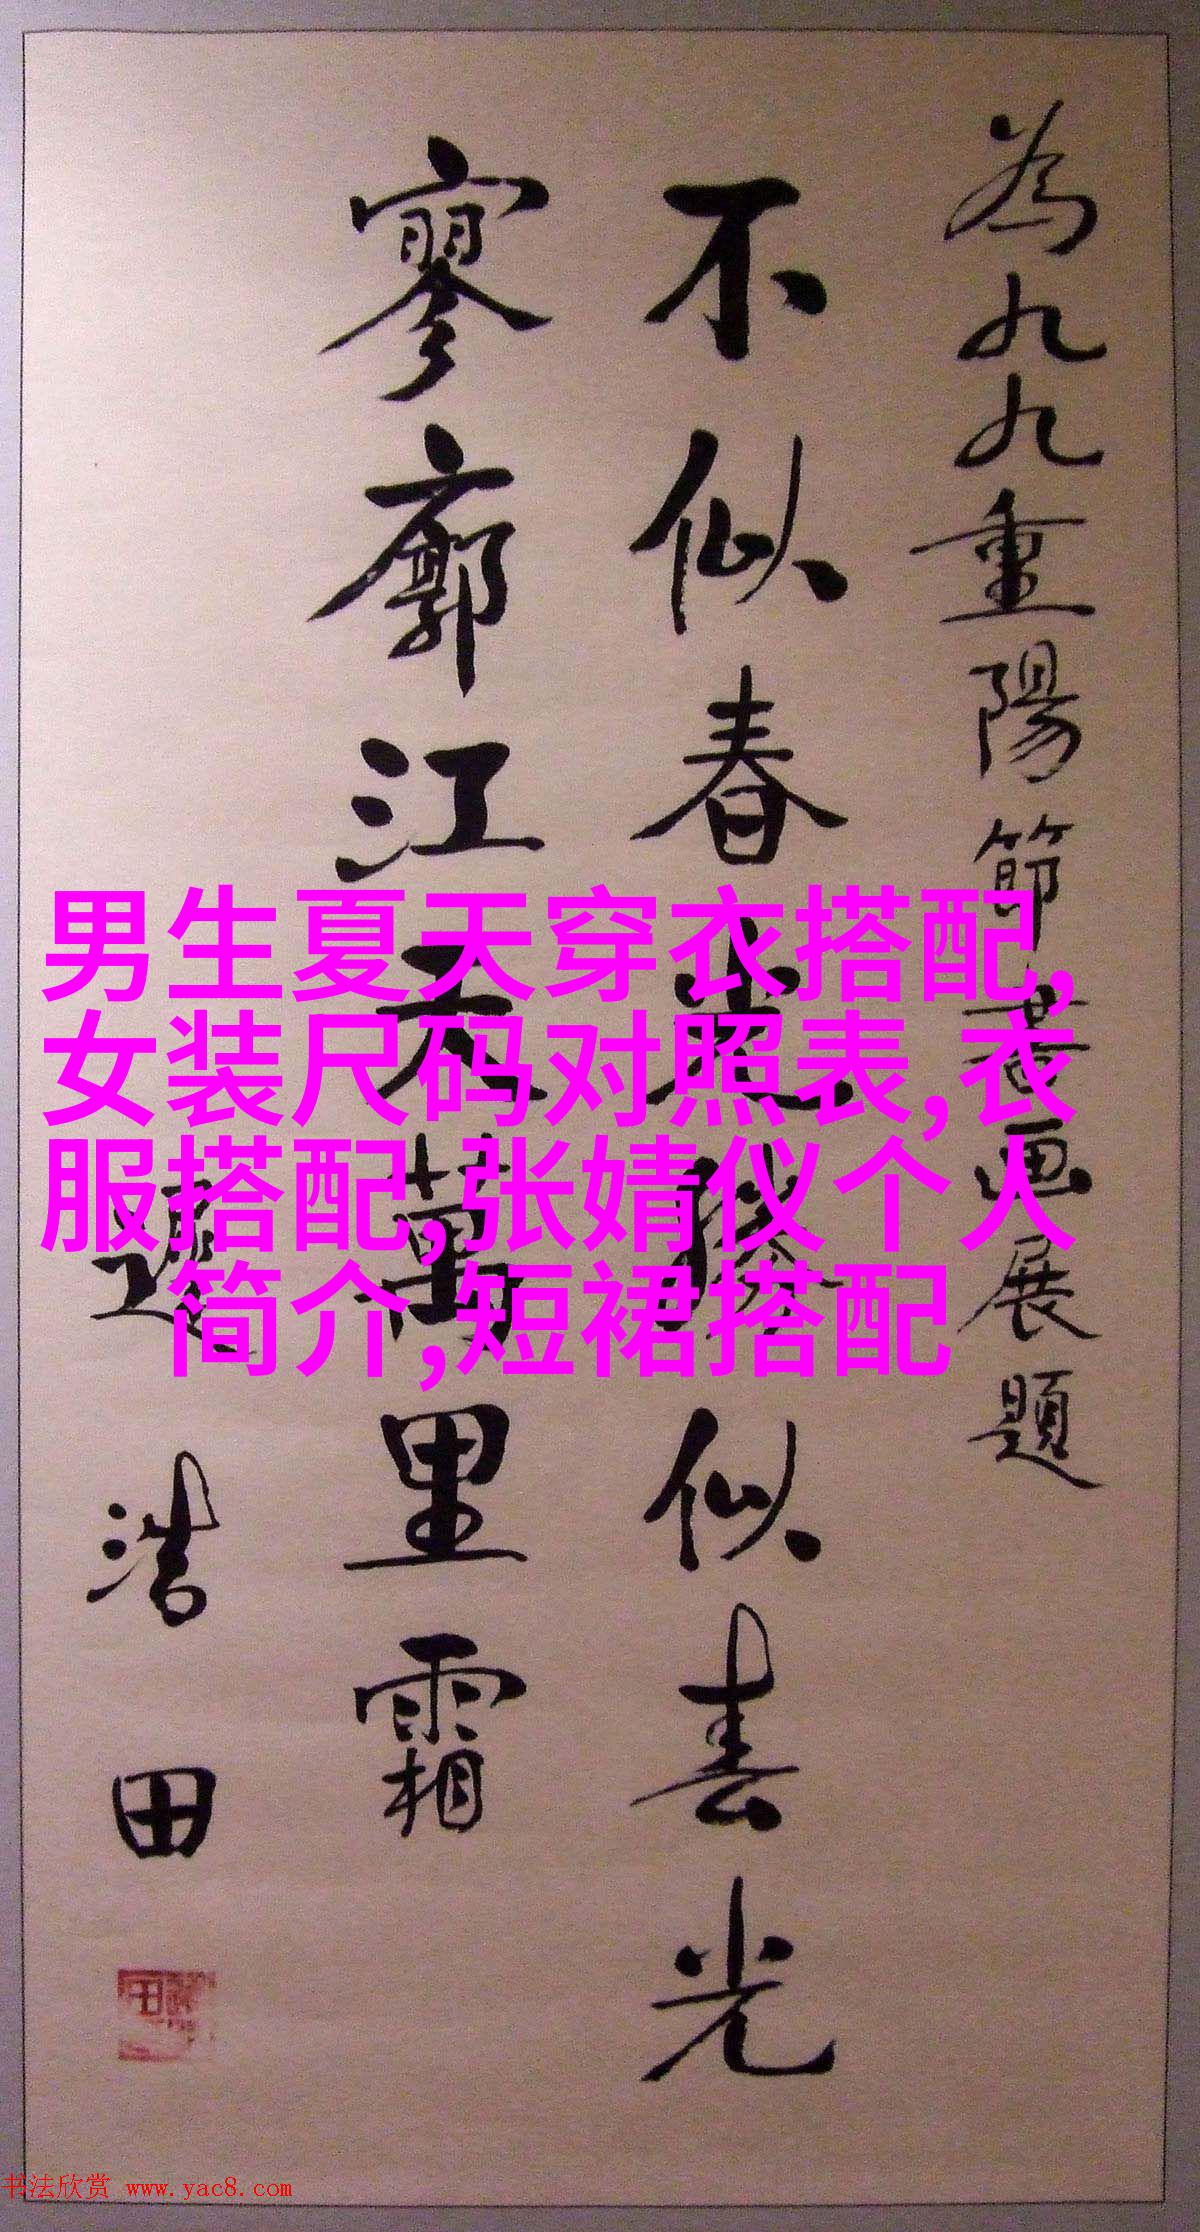 為九九重陽節書画展題
不似春光勝似春光
寥廓江天萬里霜
遲浩田
男生夏天穿衣搭配,
女装尺码对照表,衣
服搭配,张婧仪个人
简介,短裙搭配
书法欣赏 www.yac8.com